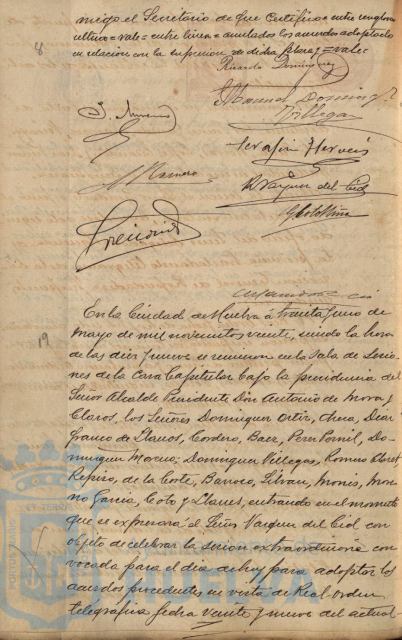 migo el Secretario de que Certifico = entre renglones
ultimo = vale = entre lineas = anulados los acuerdos adoptados
en relacion con la supresion de dicha plaza = vale =
8
Ricardo Dominguez
Manuel Domingz
Villegas
Serafin
Vazquez del Cid
M Romero
En la Ciudad de Huelva á treinta y uno de
Mayo de mil novecientos veinte, siendo la hora
19
de las diez y nueve se reunieron en la Sala de Sesio-
nes de la Casa Capitular bajo la presidencia del
Señor Alcalde Presidente Don Antonio de Mora y
Claros, los Señores Dominguez Ortiz, Checa, Diaz
Franco de Llanos, Cordero, Baez, Do-
minguez Moreno, Dominguez Villegas, Romero
Repiso, de la Corte, Barroso, Silvan, Mo-
no Garcia, Coto y Llanes, entrando en el momento
que se expresará el Señor Vazquez del Cid con
objeto de celebrar la sesion extraordinaria con
vocada para el dia de hoy para adoptar los
acuerdos procedentes en vista de Real orden
telegráfica fecha veinte y nueve del actual